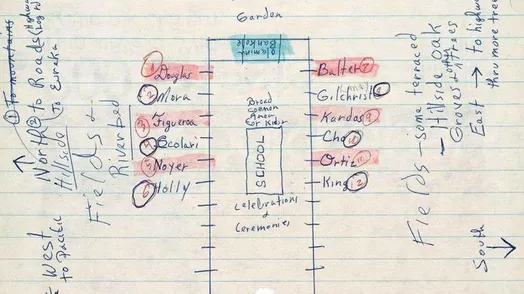 Garden
Olamina
Bankole
1 Douglas
2 Mora
3 Figueroa
4 Scolari
5 Noyer
6 Holly
Broad
Common
Area for Kids
SCHOOL
Celebrations
&
Ceremonies
Balter 7
Gilchrist 8
Kardos 9
Cho 10
Ortiz 11
King 12
① To mountains
North ② To Roads
To Eureka
Hillside
Fields &
River bed
West
to Pacific
Fields - some terraced
- Hillside oak
Groves + other trees
East → to highway
thru more trees
South